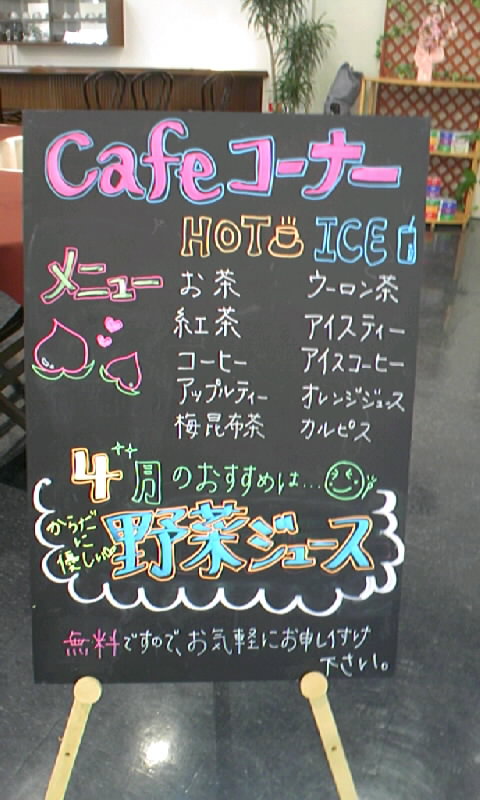 Cafeコーナー
HOT ICE
メニュー
お茶 ウーロン茶
紅茶 アイスティー
コーヒー アイスコーヒー
アップルティー オレンジジュース
梅昆布茶 カルピス
4月のおすすめは…
からだに優しい
野菜ジュース
無料ですので、お気軽にお申しつけ
下さい。